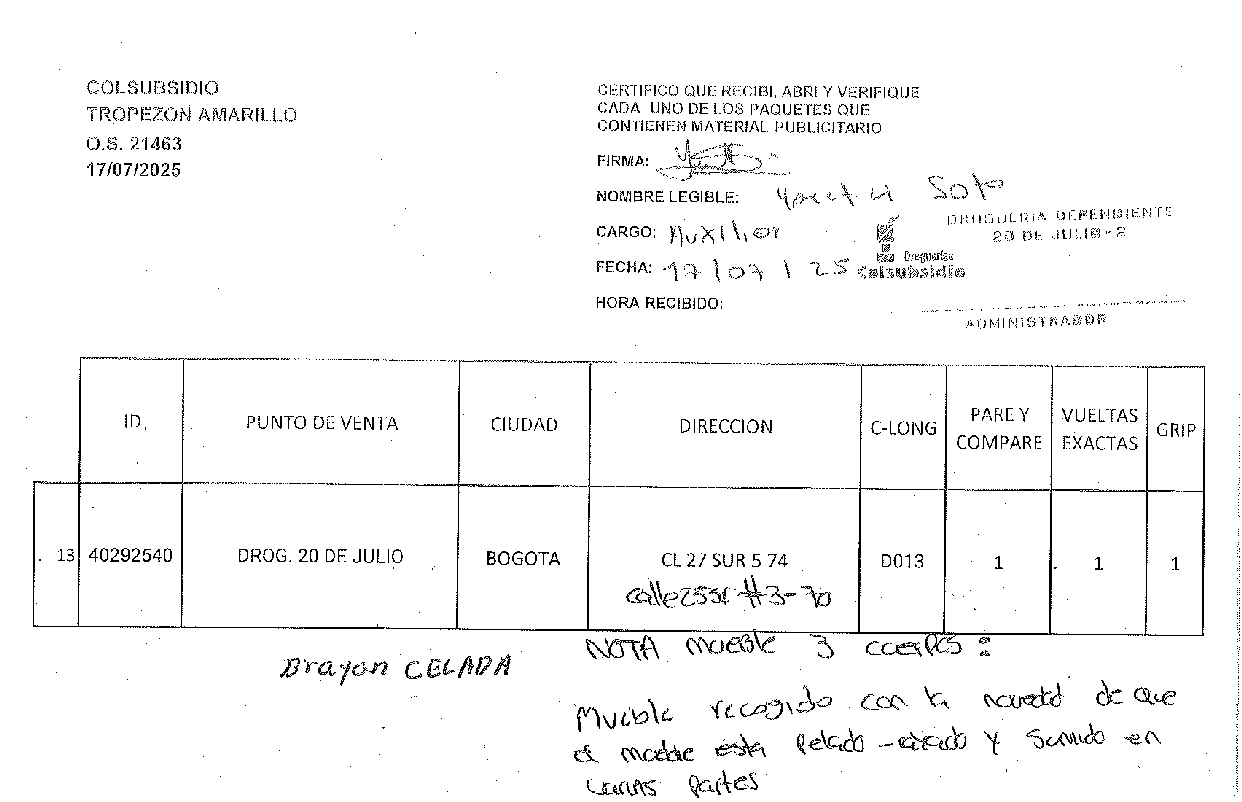 COLSUBSIDIO
TROPEZON AMARILLO
O.S. 21463
17/07/2025
CERTIFICO QUE RECIBI, ABRI Y VERIFIQUE
CADA UNO DE LOS PAQUETES QUE
CONTIENEN MATERIAL PUBLICITARIO
FIRMA:
NOMBRE LEGIBLE: Soto
CARGO: Auxiliar
FECHA: 17/07/25
HORA RECIBIDO:
DROGUERIA DEPENDIENTE
20 DE JULIO-2
Droguerías
Colsubsidio
ADMINISTRADOR
ID. PUNTO DE VENTA CIUDAD DIRECCION C-LONG PARE Y COMPARE VUELTAS EXACTAS GRIP
13 40292540 DROG. 20 DE JULIO BOGOTA CL 27 SUR 5 74 D013 1 1 1
#3-70
Brayan CELADA
NOTA mueble 3 cuerpos:
Mueble recogido con la novedad de que
el mueble esta Pelado - y en
varias Partes